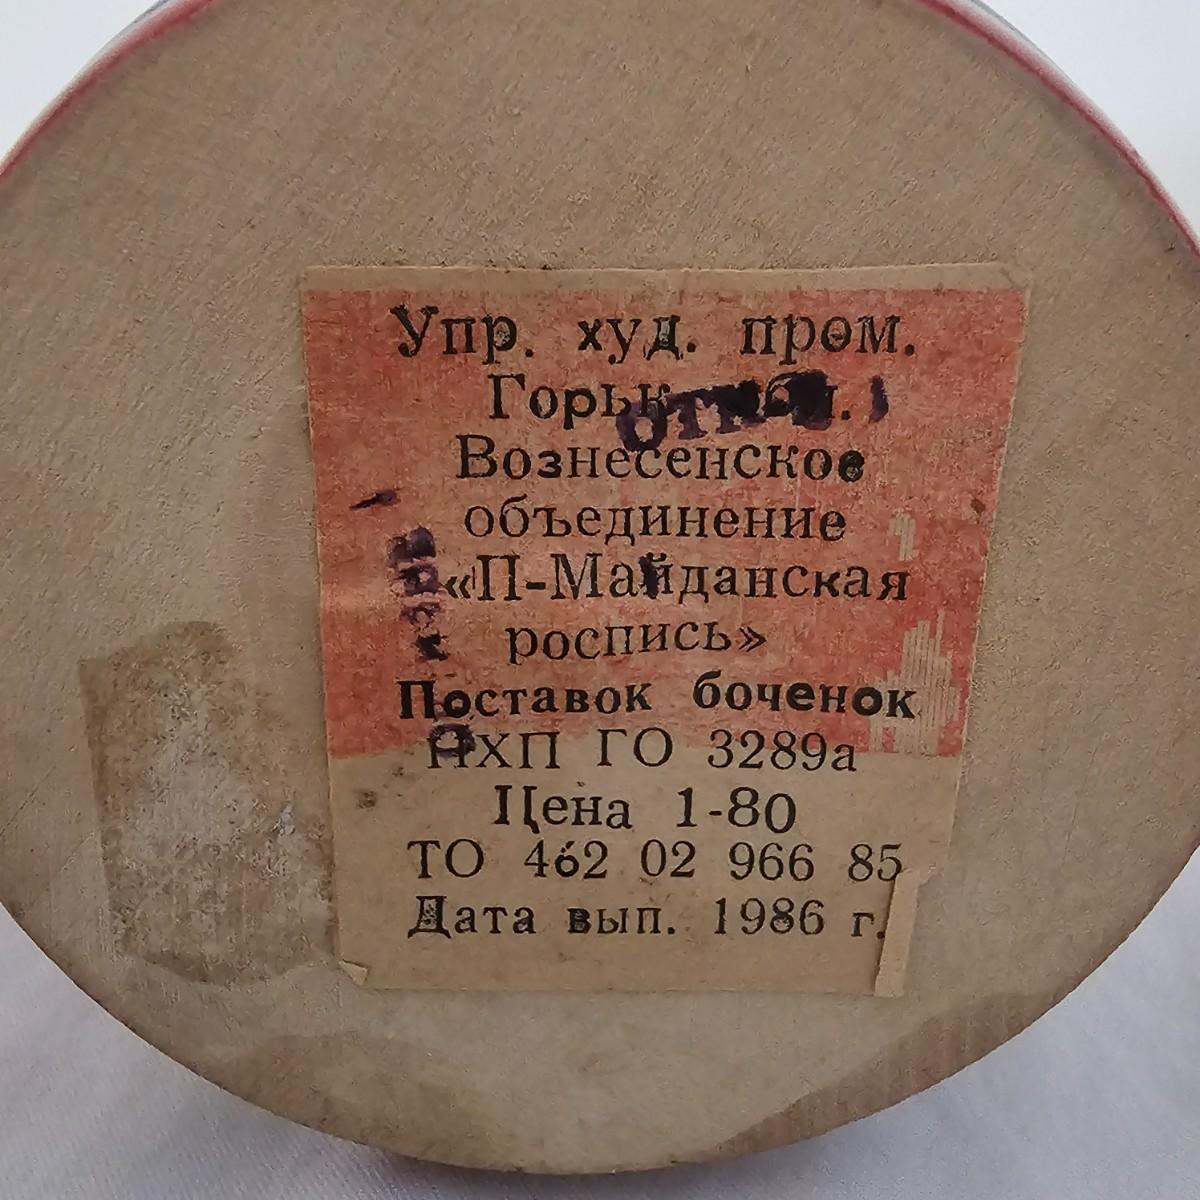 Упр. худ. пром.
Вознесенское
объединение
«П-Майданская
роспись»
Поставок боченок
НХП ГО 3289а
Цена 1-80
ТО 462 02 966 85
Дата вып. 1986 г.